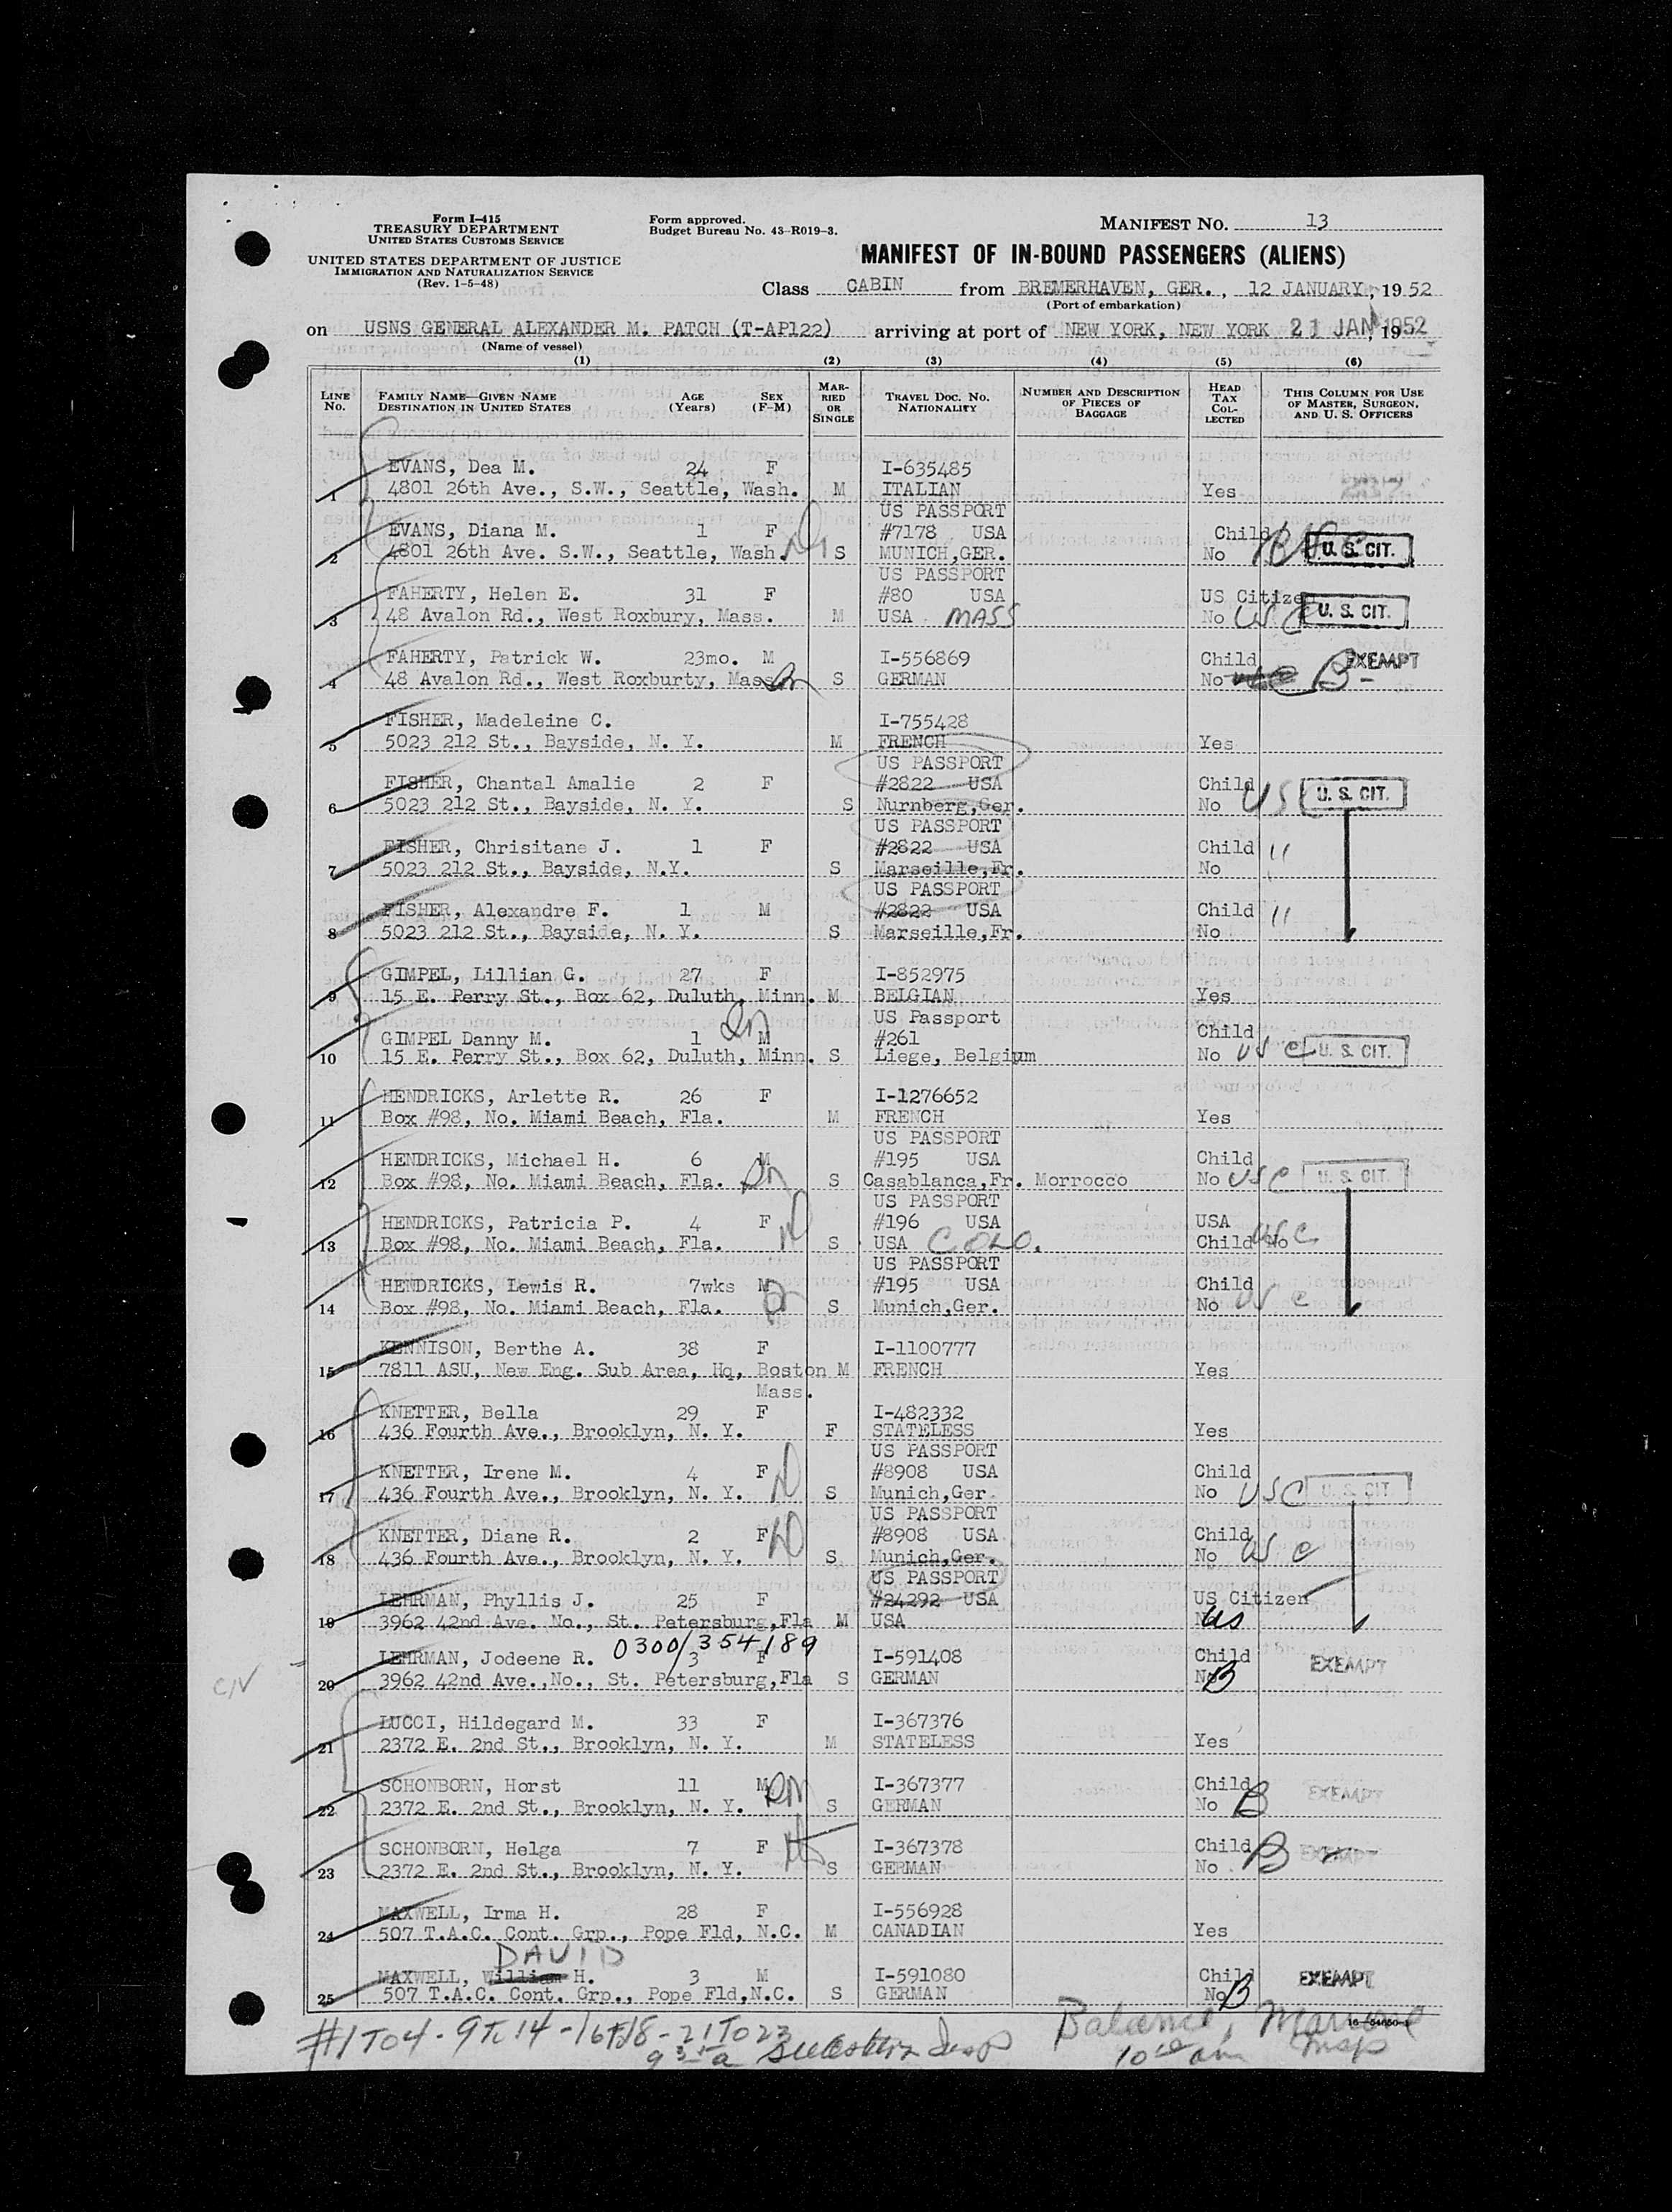 Form I-415
TREASURY DEPARTMENT
UNITED STATES CUSTOMS SERVICE
UNITED STATES DEPARTMENT OF JUSTICE
IMMIGRATION AND NATURALIZATION SERVICE
(Rev. 1-5-48)
Form approved.
Budget Bureau No. 43-R019-3.
MANIFEST NO. 13
MANIFEST OF IN-BOUND PASSENGERS (ALIENS)
Class CABIN from BREMERHAVEN, GER., 12 JANUARY, 1952
(Port of embarkation)
on USNS GENERAL ALEXANDER M. PATCH (T-AP122) arriving at port of NEW YORK, NEW YORK 21 JAN, 1952
(Name of vessel)
(1) (2) (3) (4) (5) (6)
LINE No. FAMILY NAME—GIVEN NAME DESTINATION IN UNITED STATES AGE (Years) SEX (F-M) MARRIED OR SINGLE TRAVEL DOC. NO. NATIONALITY NUMBER AND DESCRIPTION OF PIECES OF BAGGAGE HEAD TAX COLLECTED THIS COLUMN FOR USE OF MASTER, SURGEON, AND U. S. OFFICERS
EVANS, Dea M. 24 F I-635485
1 4801 26th Ave., S.W., Seattle, Wash. M ITALIAN Yes
US PASSPORT
EVANS, Diana M. 1 F #7178 USA Child
2 4801 26th Ave. S.W., Seattle, Wash. S MUNICH,GER. No U. S. CIT.
US PASSPORT
FAHERTY, Helen E. 31 F #80 USA US Citizen
3 48 Avalon Rd., West Roxbury, Mass. M USA MASS No USC U. S. CIT.
FAHERTY, Patrick W. 23mo. M I-556869 Child EXEMPT
4 48 Avalon Rd., West Roxburty, Mass S GERMAN No B-
FISHER, Madeleine C. I-755428
5 5023 212 St., Bayside, N. Y. M FRENCH Yes
US PASSPORT
FISHER, Chantal Amalie 2 F #2822 USA Child
6 5023 212 St., Bayside, N. Y. S Nurnberg,Ger. No USC U. S. CIT.
US PASSPORT
FISHER, Chrisitane J. 1 F #2822 USA Child "
7 5023 212 St., Bayside, N.Y. S Marseille,Fr. No
US PASSPORT
FISHER, Alexandre F. 1 M #2822 USA Child "
8 5023 212 St., Bayside, N. Y. S Marseille,Fr. No
GIMPEL, Lillian G. 27 F I-852975
9 15 E. Perry St., Box 62, Duluth, Minn. M BELGIAN Yes
US Passport
GIMPEL Danny M. 1 M #261 Child
10 15 E. Perry St., Box 62, Duluth, Minn. S Liege, Belgium No USC U. S. CIT.
HENDRICKS, Arlette R. 26 F I-1276652
11 Box #98, No. Miami Beach, Fla. M FRENCH Yes
US PASSPORT
HENDRICKS, Michael H. 6 M #195 USA Child
12 Box #98, No. Miami Beach, Fla. S Casablanca,Fr. Morrocco No USC U. S. CIT.
US PASSPORT
HENDRICKS, Patricia P. 4 F #196 USA USA
13 Box #98, No. Miami Beach, Fla. S USA COLO. Child No USC
US PASSPORT
HENDRICKS, Lewis R. 7wks M #195 USA Child
14 Box #98, No. Miami Beach, Fla. S Munich,Ger. No USC
KENNISON, Berthe A. 38 F I-1100777
15 7811 ASU, New Eng. Sub Area, Hq, Boston M FRENCH Yes
Mass.
KNETTER, Bella 29 F I-482332
16 436 Fourth Ave., Brooklyn, N. Y. F STATELESS Yes
US PASSPORT
KNETTER, Irene M. 4 F #8908 USA Child
17 436 Fourth Ave., Brooklyn, N. Y. S Munich,Ger. No USC U. S. CIT
US PASSPORT
KNETTER, Diane R. 2 F #8908 USA Child
18 436 Fourth Ave., Brooklyn, N. Y. S Munich,Ger. No USC
US PASSPORT
LEHRMAN, Phyllis J. 25 F #24292 USA US Citizen
19 3962 42nd Ave. No., St. Petersburg,Fla M USA US
0300/354189
LEHRMAN, Jodeene R. 3 F I-591408 Child EXEMPT
C/V 20 3962 42nd Ave.,No., St. Petersburg,Fla S GERMAN No B
LUCCI, Hildegard M. 33 F I-367376
21 2372 E. 2nd St., Brooklyn, N. Y. M STATELESS Yes
SCHONBORN, Horst 11 M I-367377 Child EXEMPT
22 2372 E. 2nd St., Brooklyn, N. Y. S GERMAN No B
SCHONBORN, Helga 7 F I-367378 Child EXEMPT
23 2372 E. 2nd St., Brooklyn, N. Y. S GERMAN No B
MAXWELL, Irma H. 28 F I-556928
24 507 T.A.C. Cont. Grp., Pope Fld, N.C. M CANADIAN Yes
DAVID
MAXWELL, William H. 3 M I-591080 Child EXEMPT
25 507 T.A.C. Cont. Grp., Pope Fld,N.C. S GERMAN No B
#1 TO 4 - 9 TO 14 - 16 TO 18 - 21 TO 23 Balance,
10 am